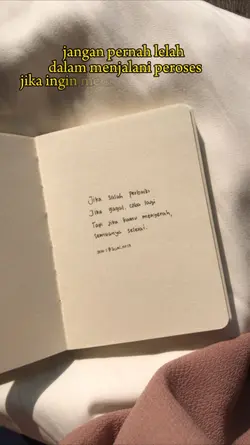 jangan pernah lelah
dalam menjalani peroses
jika ingin
Jika salah perbaiki
Jika gagal, coba lagi
Tapi jika kamu menyerah,
semuanya selesai.